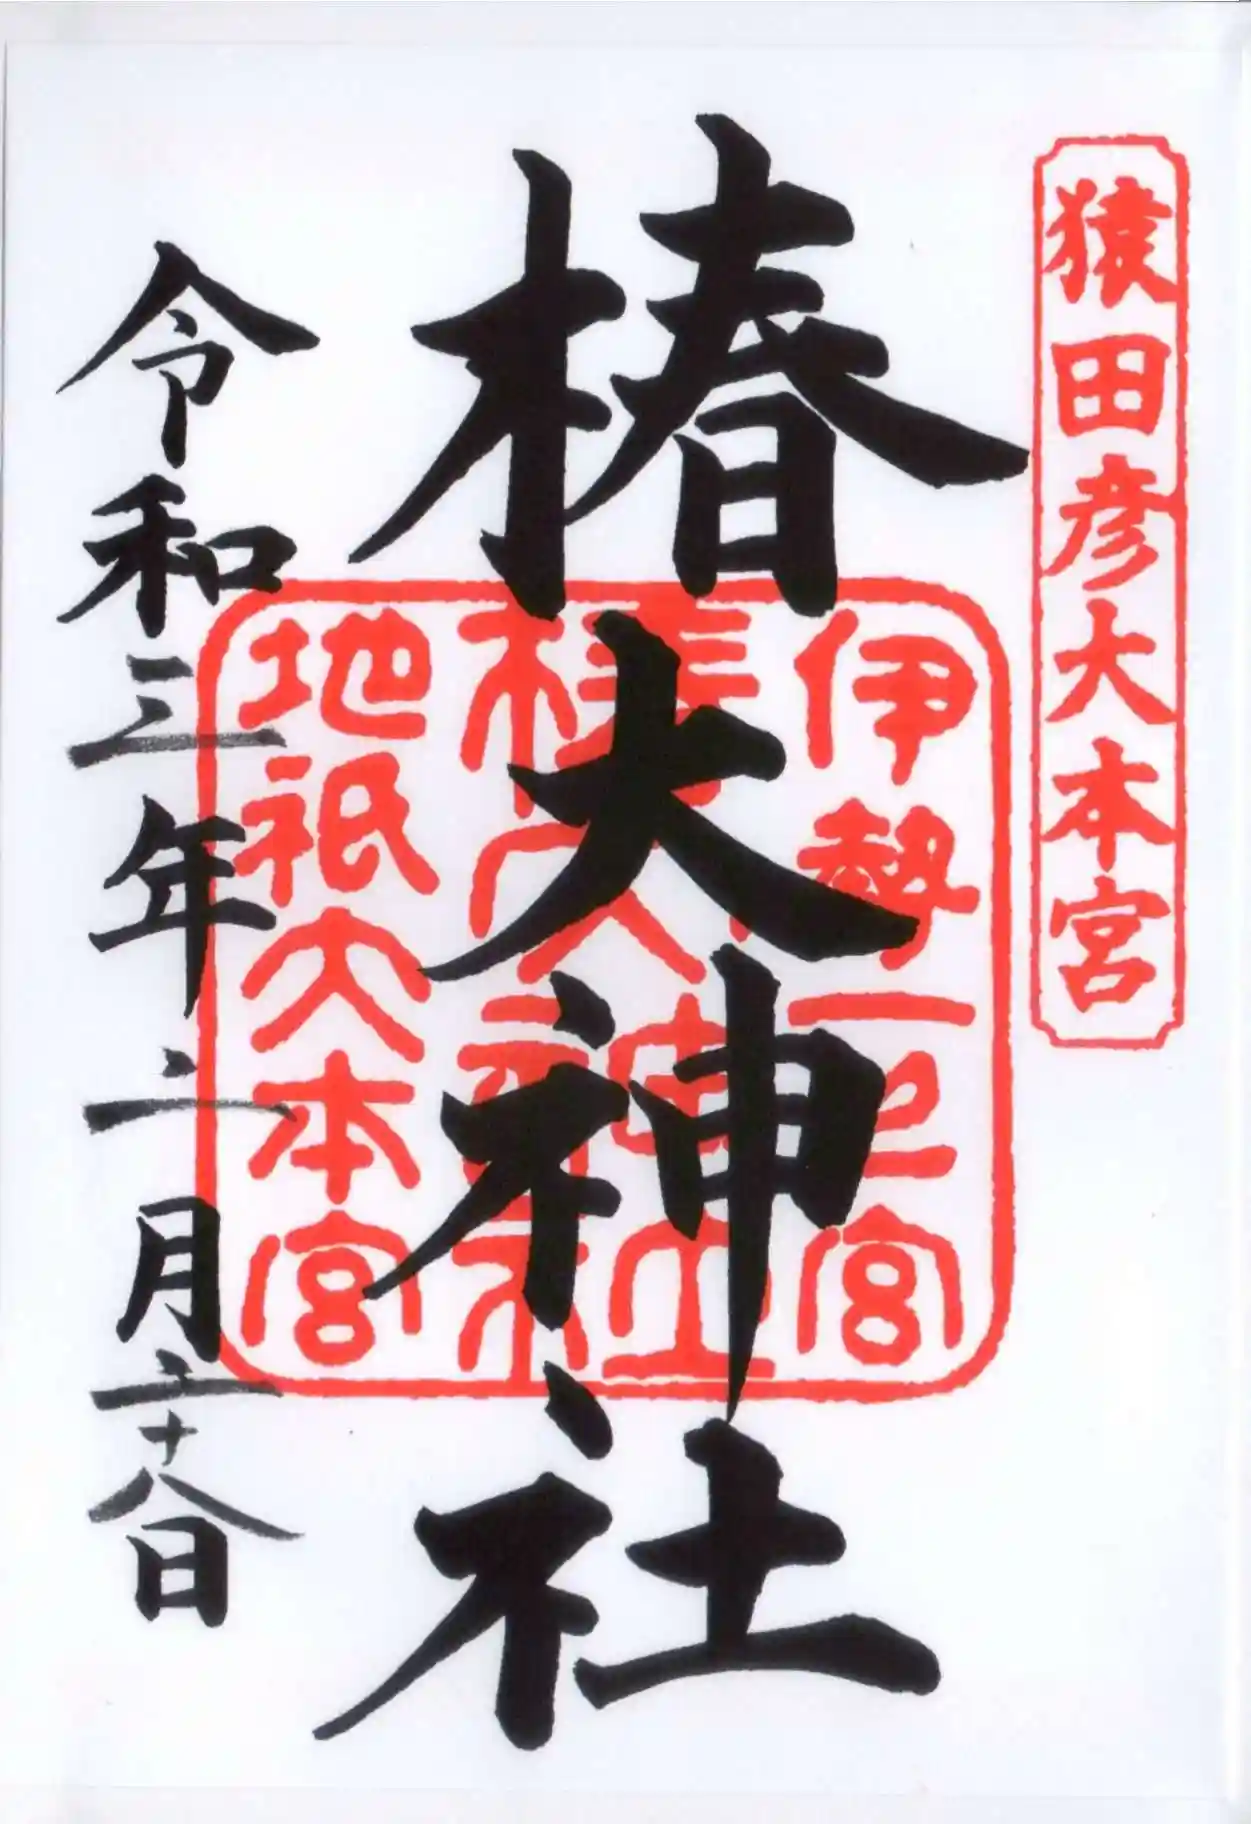 猿田彦大本宮
椿大神社
伊勢一之宮
椿大神社
地祇大本宮
令和三年二月二十八日